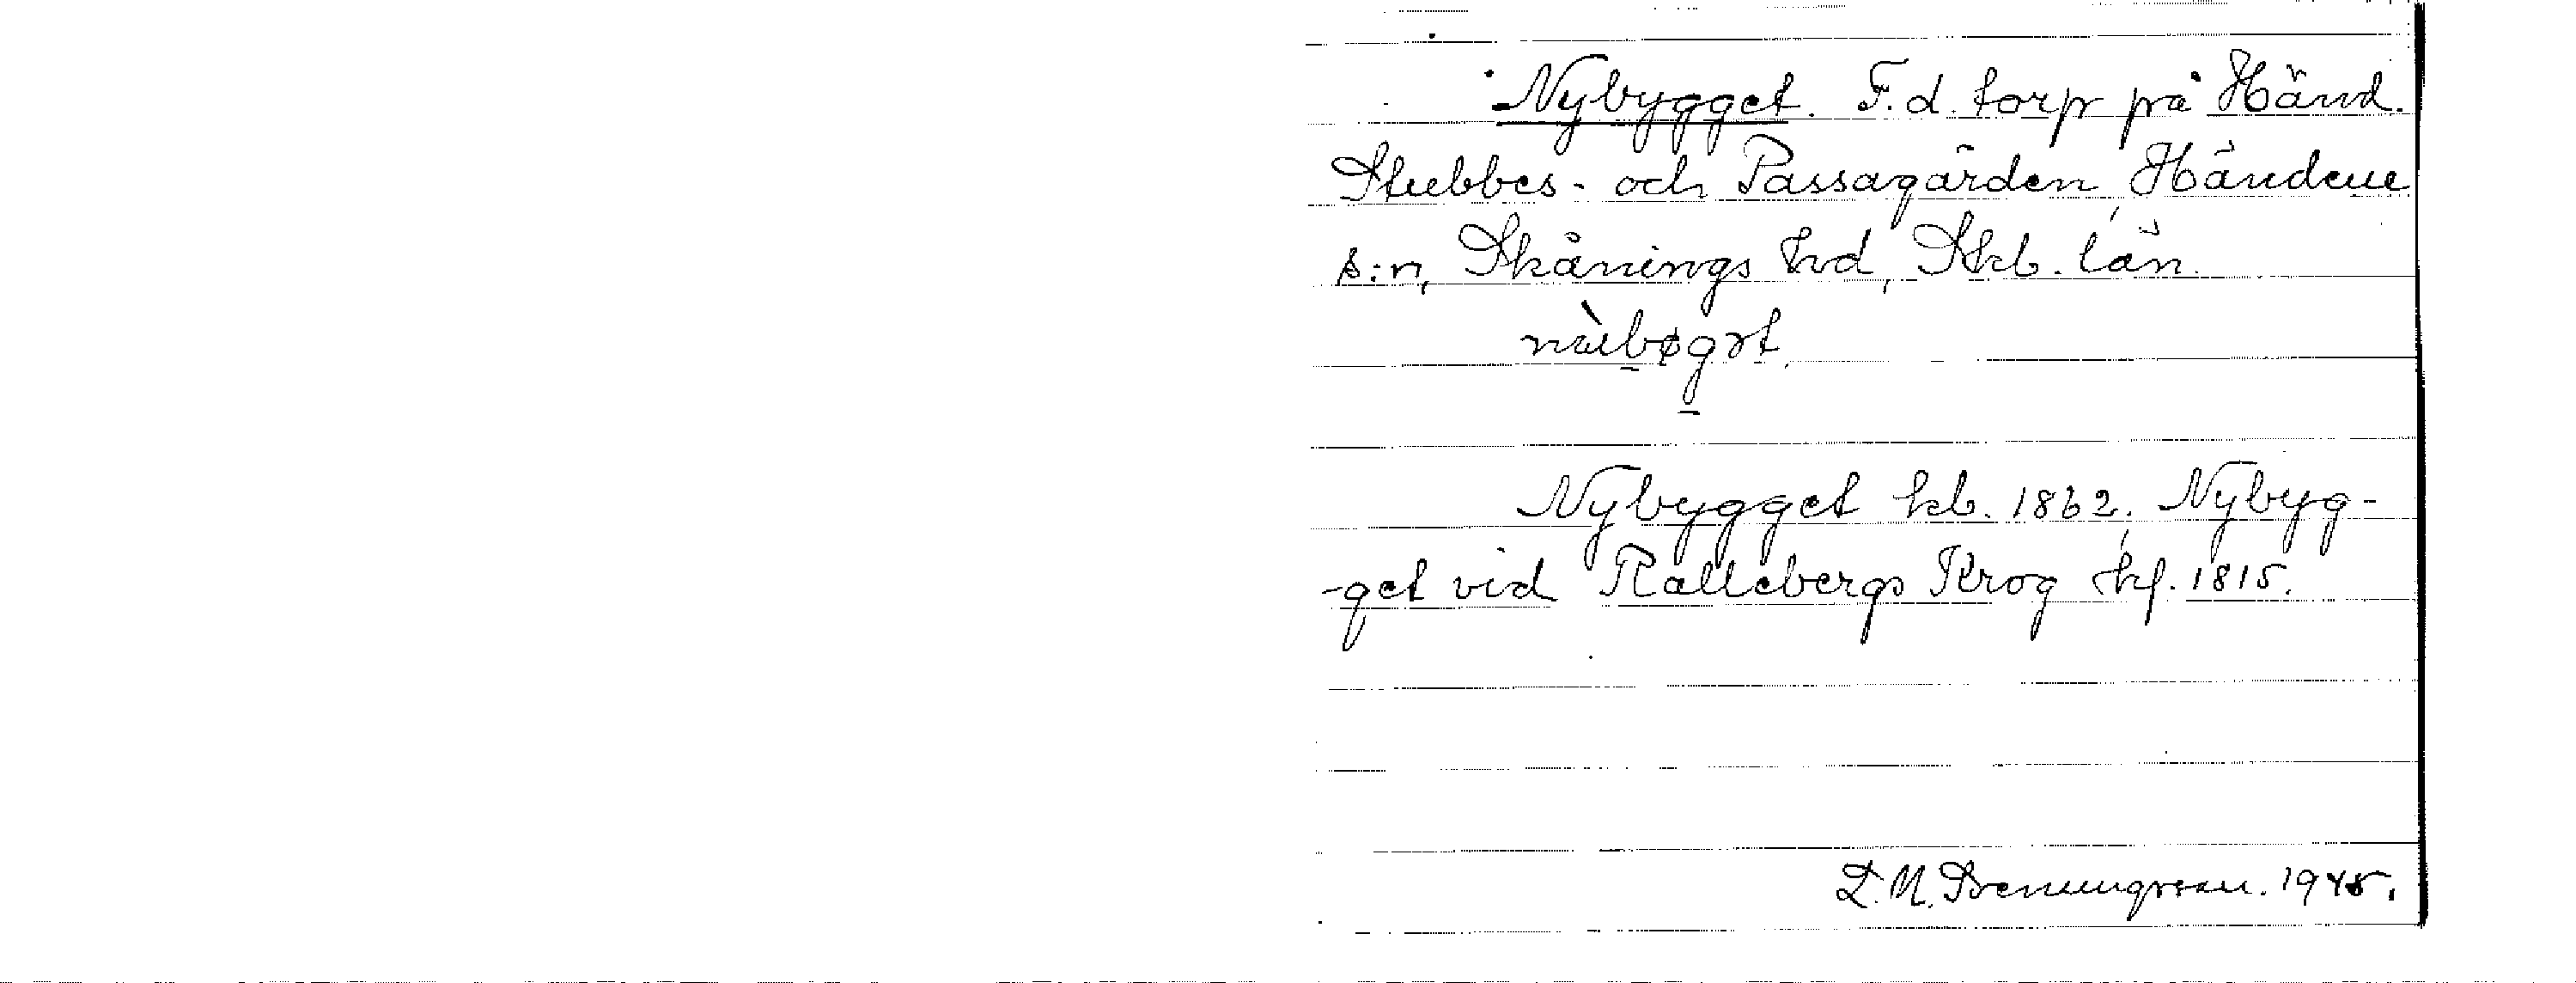 Nybygget. F.d. torp på Händ.
Stubbes- och Passagården, Händene
s:n, Skånings hd, Skb. län.
Nybygget kb. 1862; Nybyg-
-get vid Rallebergs Krog hf. 1815.
1945.